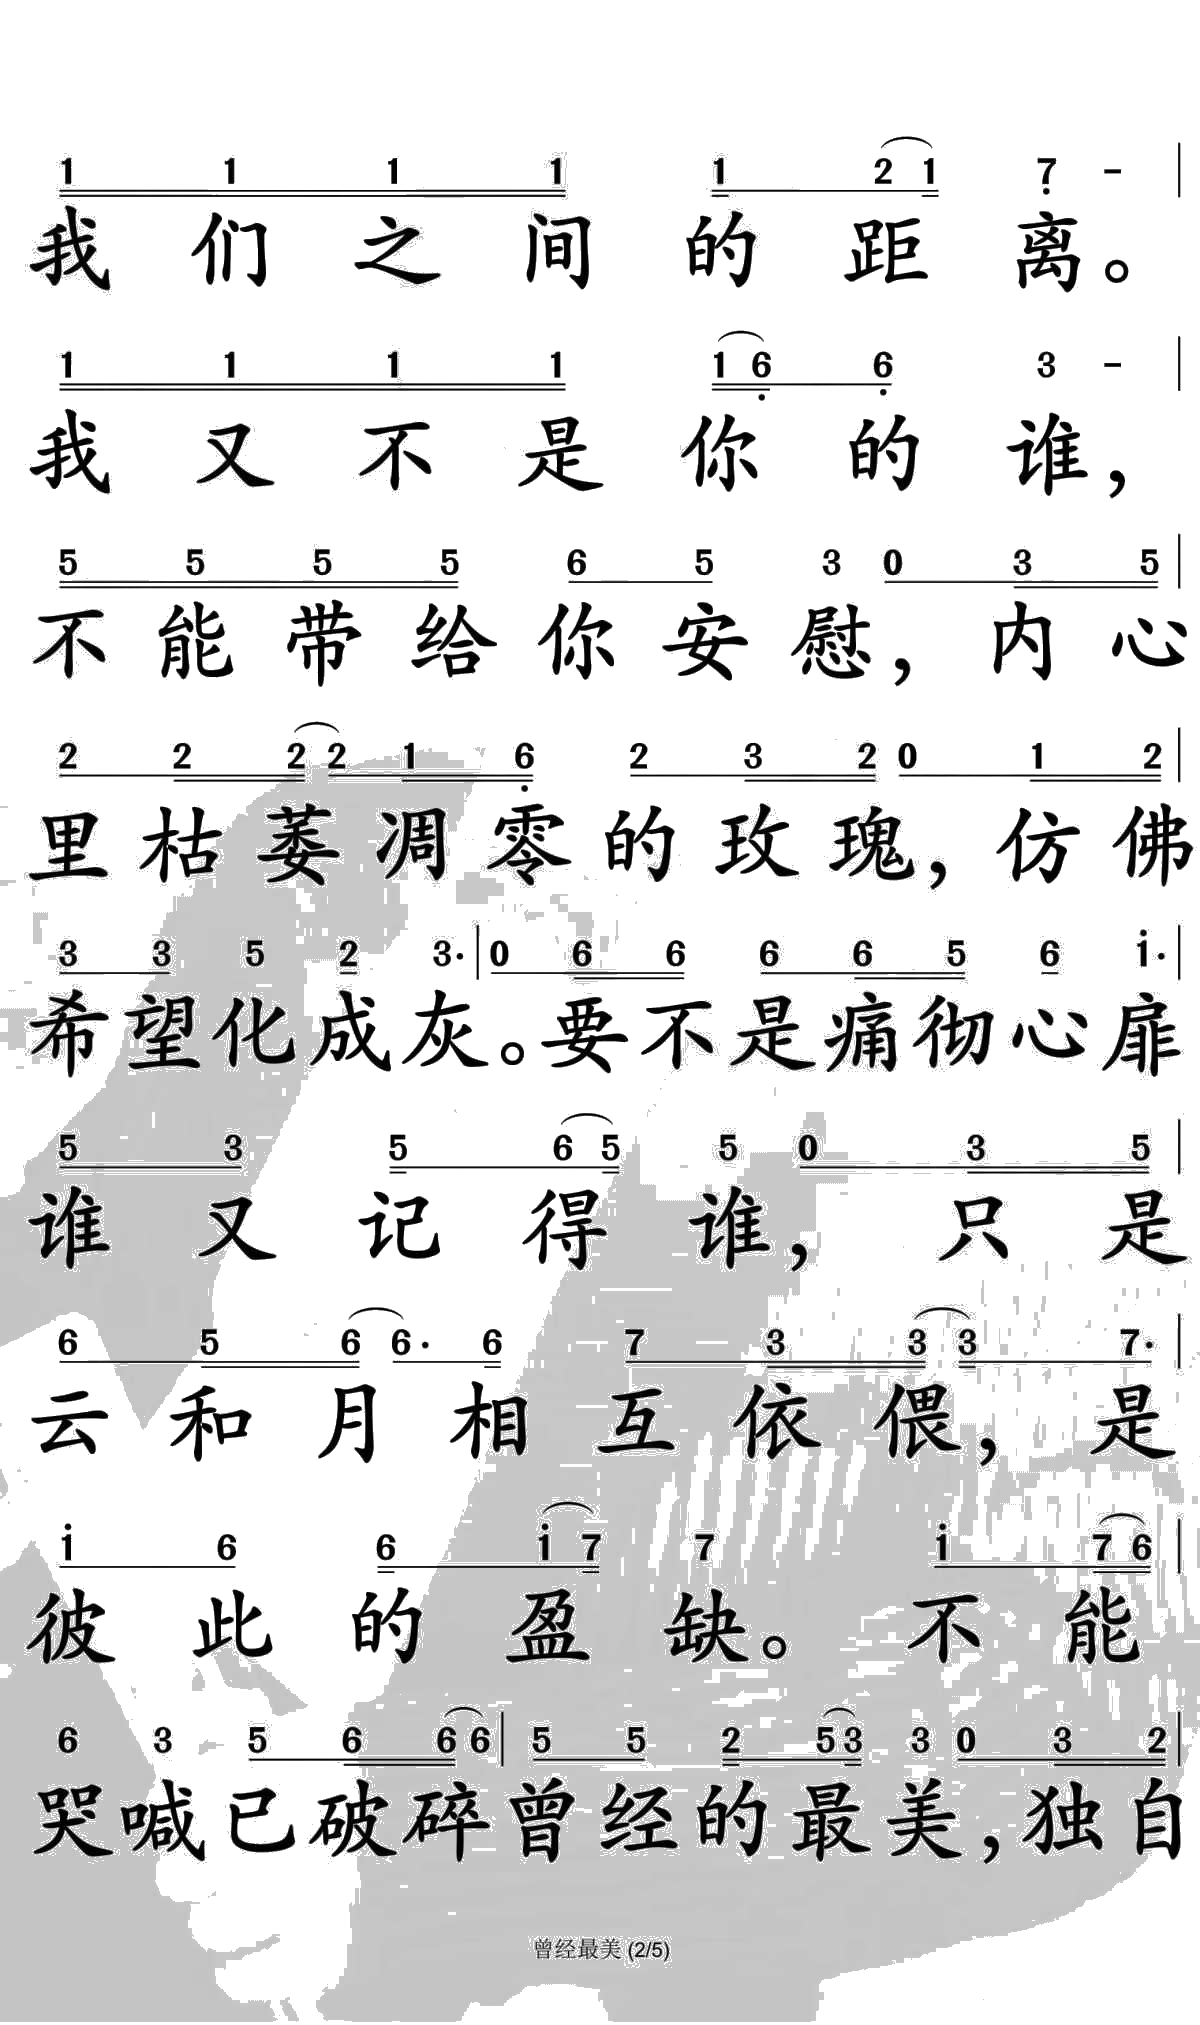 1 1 1 1 1 2 1 7 -
我们之间的距离。
1 1 1 1 1 6 6 3 -
我又不是你的谁，
5 5 5 5 6 5 3 0 3 5
不能带给你安慰，内心
2 2 2 2 1 6 2 3 2 0 1 2
里枯萎凋零的玫瑰，仿佛
3 3 5 2 3· 0 6 6 6 6 5 6 i·
希望化成灰。要不是痛彻心扉
5 3 5 6 5 5 0 3 5
谁又记得谁，只是
6 5 6 6· 6 7 3 3 3 7·
云和月相互依偎，是
i 6 6 i 7 7 i 7 6
彼此的盈缺。不能
6 3 5 6 6 6 5 5 2 5 3 3 0 3 2
哭喊已破碎曾经的最美，独自
曾经最美 (2/5)